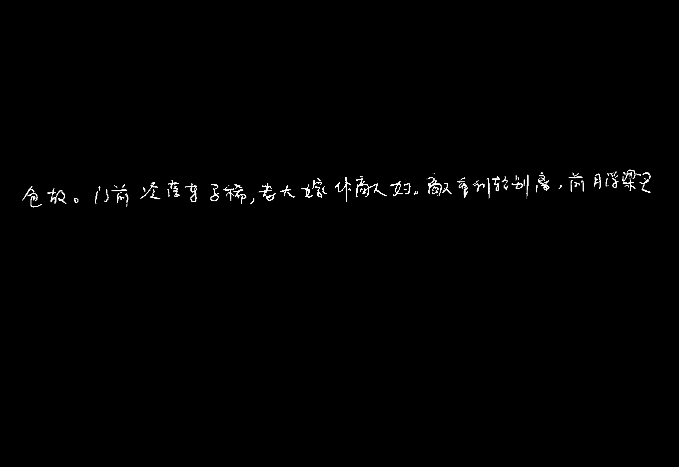 色故。门前冷落车马稀,老大嫁作商人妇。商人重利轻别离,前月浮梁买